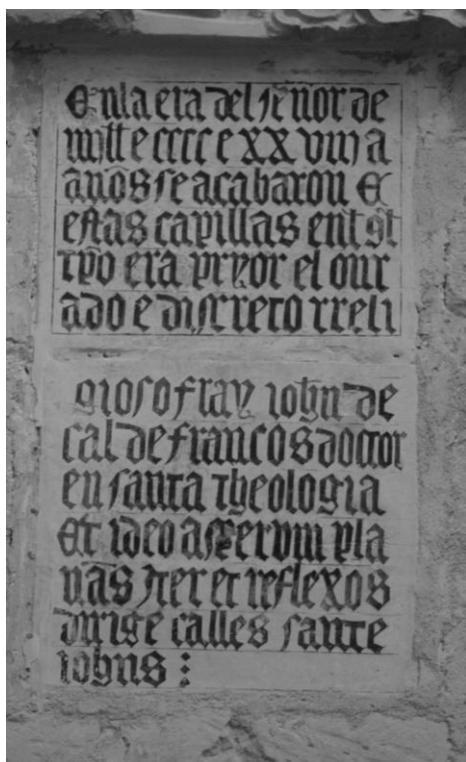 En la era del señor de
mille cccc e xx viij a
años se acabaron e
estas capillas en
tpo era pryor el onr
ado e discreto rreli
gioso fray iohn de
cal de francos doctor
en santa theologia
Et ideo aspervm pla
nas iter et reflexos
dirige calles sante
iohns :